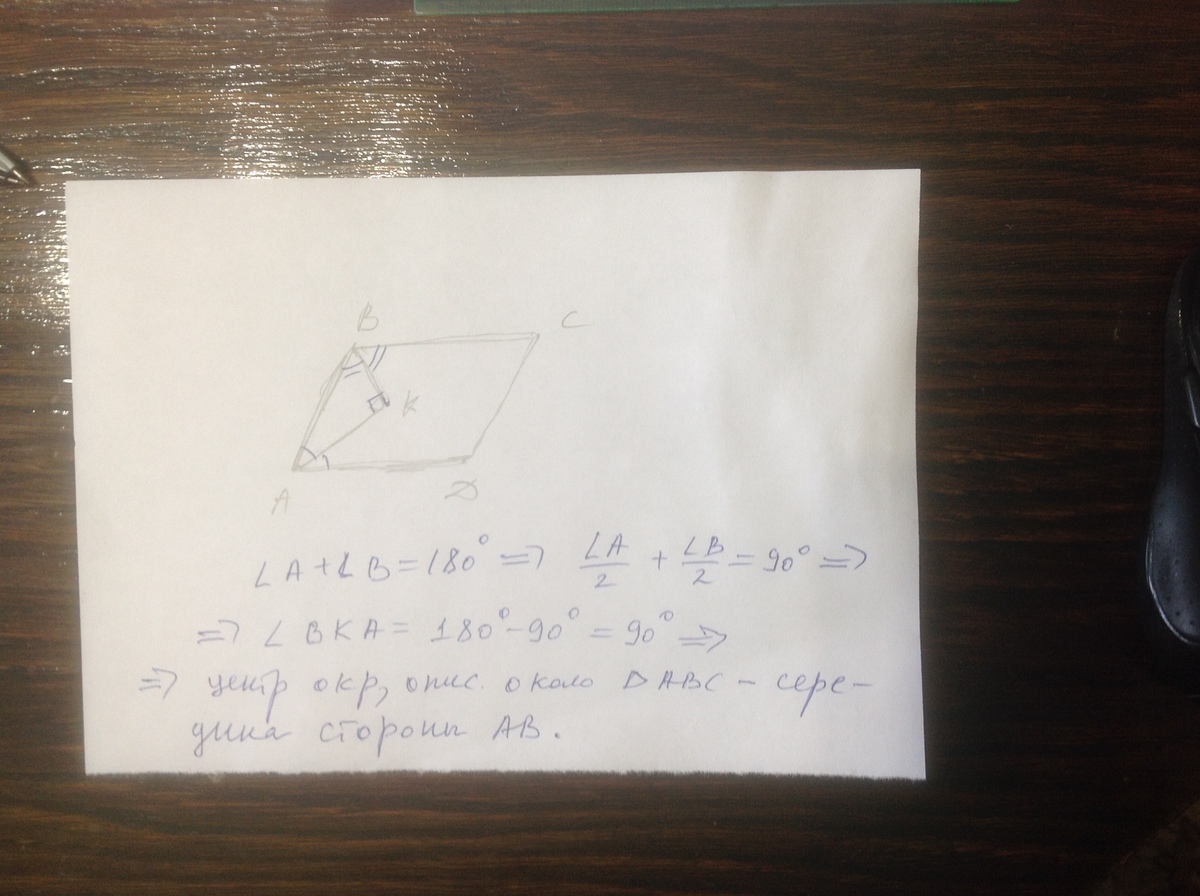 B C
K
A D
∠A+∠B=180° ⇒ ∠A/2 + ∠B/2 = 90° ⇒
⇒ ∠BKA = 180°-90° = 90° ⇒
⇒ центр окр, опис. около ΔABC - сере-
дина стороны AB.